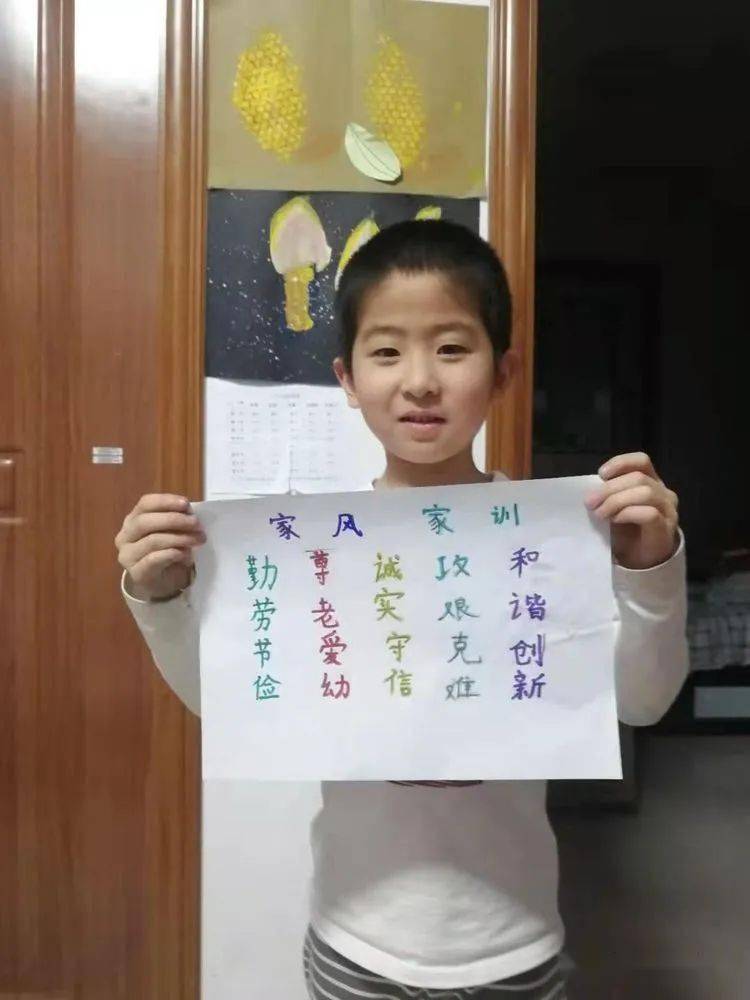 家风 家训
勤劳节俭
尊老爱幼
诚实守信
攻艰克难
和谐创新